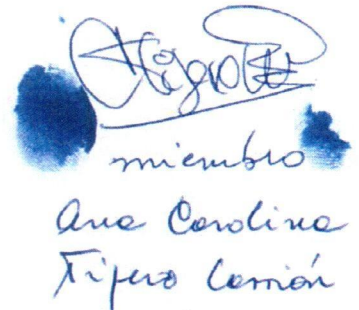 miembro
Ana Carolina
Tijero Carrión